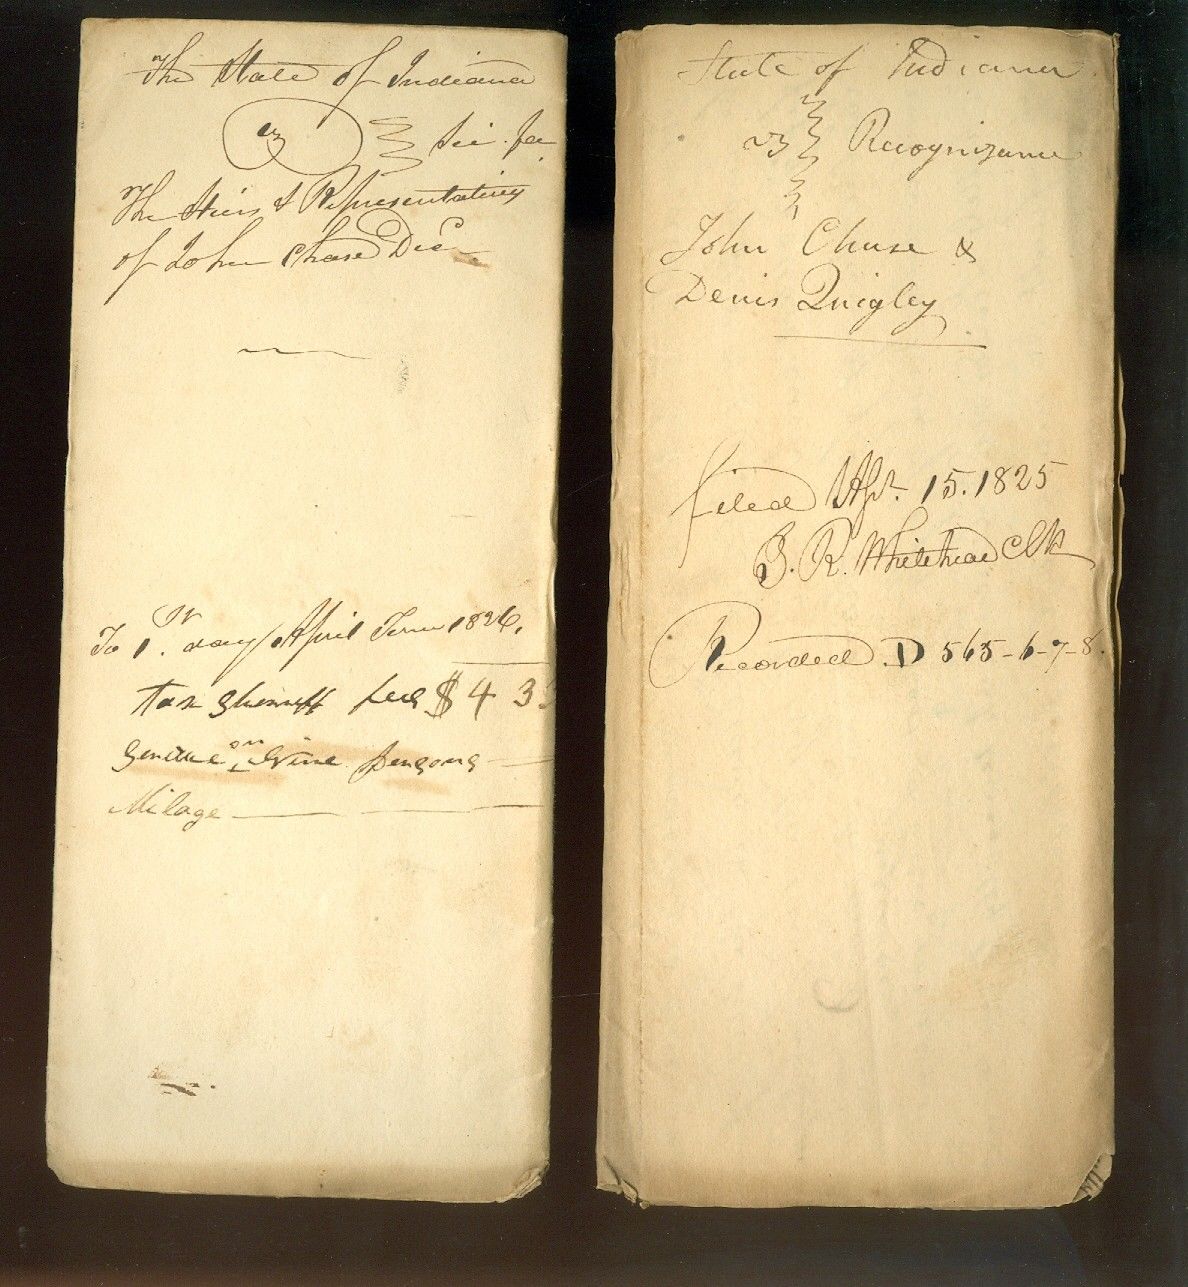 The State of Indiana
vs } Sci. fa
The Heirs & Representatives
of John Chase Decd
To 1st day April Term 1826,
tax Sheriff fees $4 3
Service on Nine persons
Milage
State of Indiana
vs } Recognizance
John Chase &
Denis Quigley
filed Apl. 15. 1825
B. R. Whitehead Clk
Recorded D 565-6-7-8.